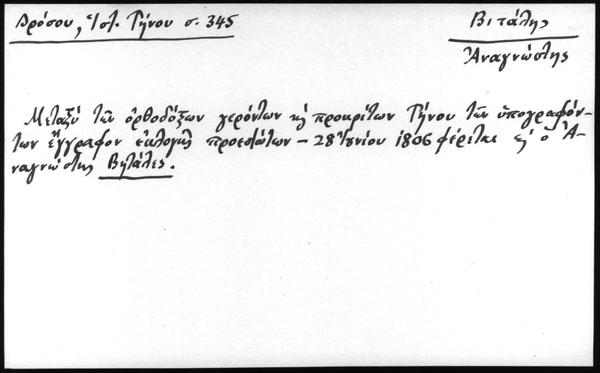 Δρόσου, Ἱστ. Τήνου σ. 345
Βιτάλης
Ἀναγνώστης
Μεταξύ τῶν ὀρθοδόξων γερόντων κ̀ προκρίτων Τήνου τῶν ὑπογραφόν-
των ἔγγραφον ἐκλογῆς προεστώτων – 28 Ἰουνίου 1806 φέρεται κ̀ ὁ Ἀ-
ναγνώστης Βητάλες.